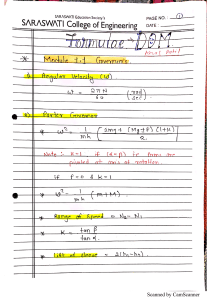 SARASWATI Education Society's
SARASWATI College of Engineering
PAGE NO. 1
DATE
Formulae - DOM
* Module 1.1 Governors
1) Angular Velocity (ω)
ω = 2πN / 60 (rad/sec)
2) Porter Governor
* ω² = 1/mh [ 2mg + (Mg ± F) (1+K) / 2 ]
Note :- K=1, if (α=β) ie arms are
pivoted at axis of rotation
if F=0 & K=1
* ω² = 1/mh (m+M)
* Range of Speed = N₂ - N₁
* K = tan β / tan α
* Lift of sleeve = 2(h₁-h₂).
Scanned by CamScanner